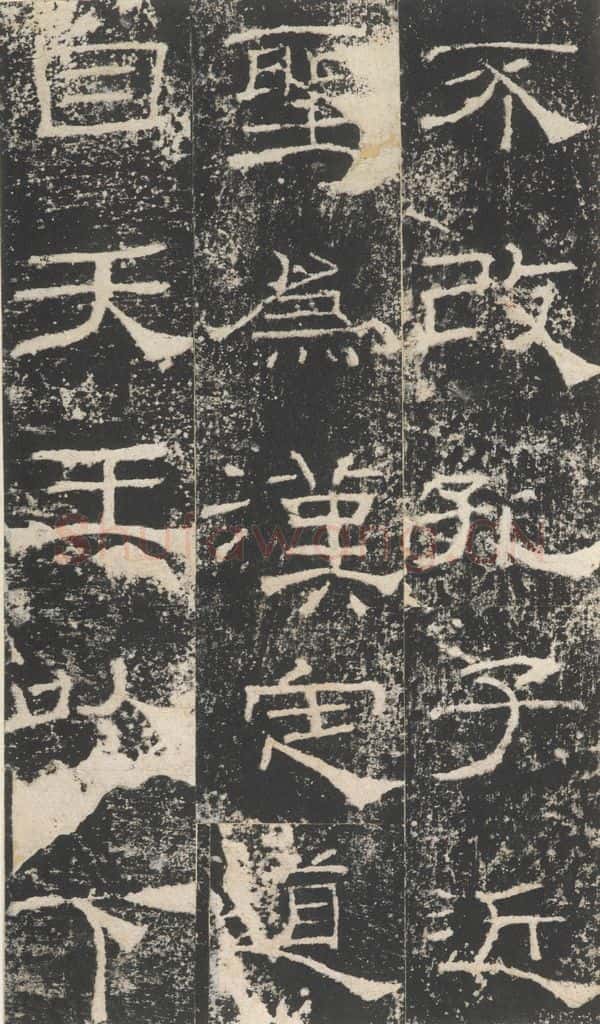 不改孔子近
聖為漢定道
自天王以下
Shufawang.CN